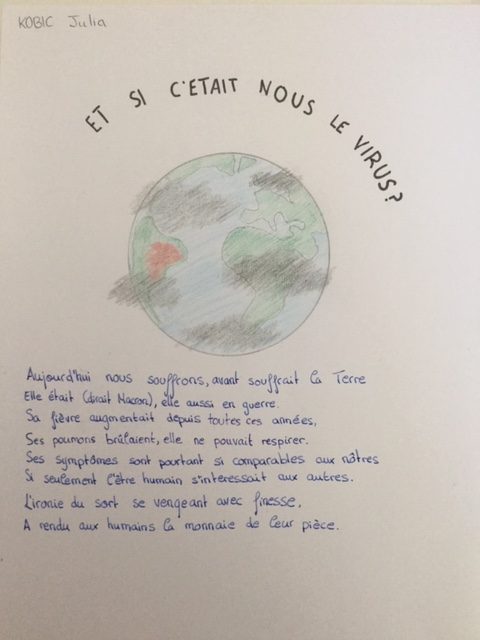 KOBIC Julia
ET SI C'ETAIT NOUS LE VIRUS?
Aujourd'hui nous souffrons, avant souffrait la Terre
Elle était (dirait Macron), elle aussi en guerre.
Sa fièvre augmentait depuis toutes ces années,
Ses poumons brûlaient, elle ne pouvait respirer.
Ses symptômes sont pourtant si comparables aux nôtres
Si seulement l'être humain s'interessait aux autres.
L'ironie du sort se vengeant avec finesse,
A rendu aux humains la monnaie de leur pièce.